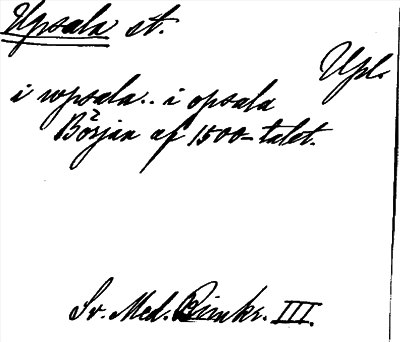 Upsala st.
Upl.
i wpsala.. i opsala
Början af 1500-talet.
Sv. Med. Bimks. III.